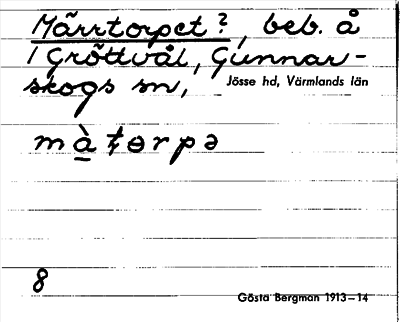 Mårrtorpet?, beb. å
1 Gröttvål, Gunnar-
skogs sn,
Jösse hd, Värmlands län
màt̩ɵrpə
8
Gösta Bergman 1913–14